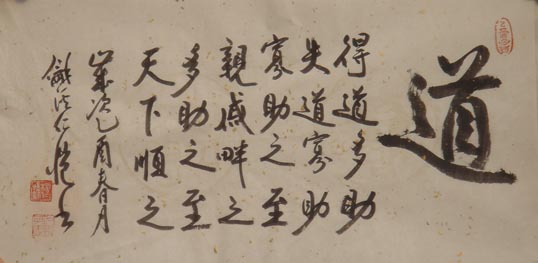 道
得道多助
失道寡助
寡助之至
親戚畔之
多助之至
天下順之
歲次乙酉春月